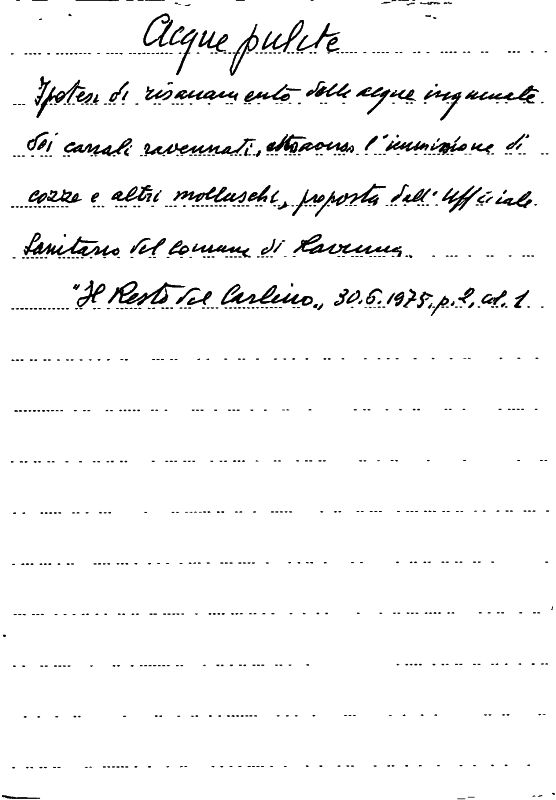 Acque pulite
Ipotesi di risanamento delle acque inquinate
dei canali ravennati, attraverso l'immissione di
cozze e altri molluschi, proposta dall'Ufficiale
Sanitario del Comune di Ravenna.
"Il Resto del Carlino", 30.6.1975, p. 2, col. 1